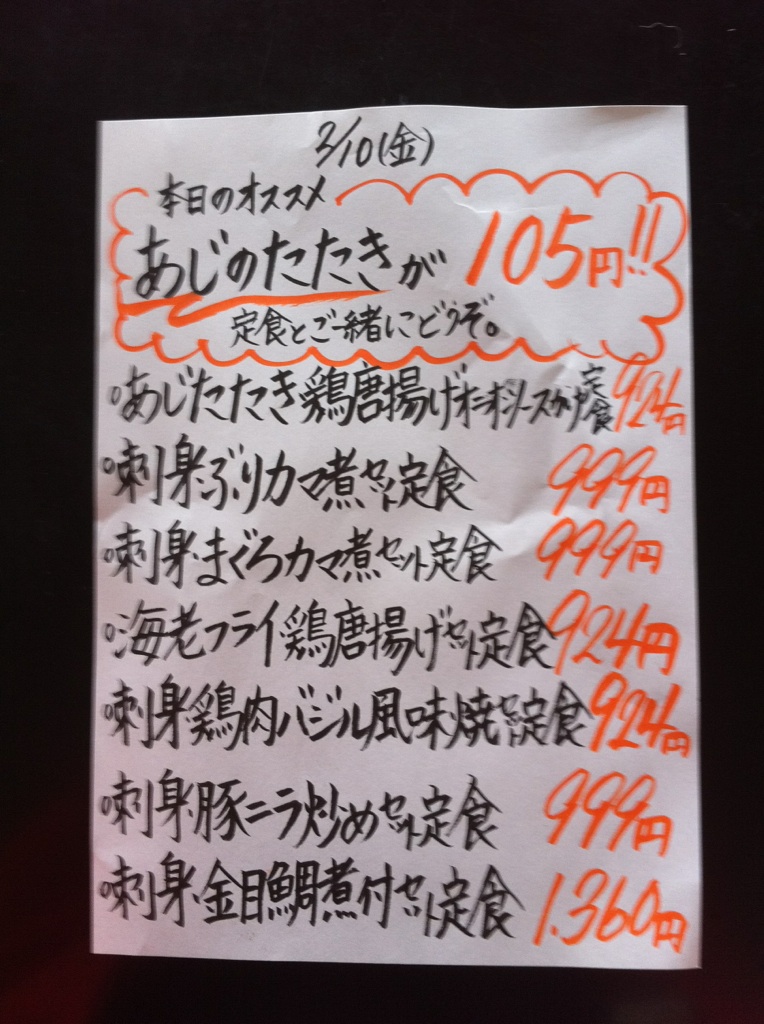 2/10(金)
本日のオススメ
あじのたたきが 105円!!
定食とご一緒にどうぞ。
○あじたたき鶏唐揚げオニオンソースかけ定食 924円
○刺身ぶりカマ煮セット定食 999円
○刺身まぐろカマ煮セット定食 999円
○海老フライ鶏唐揚げセット定食 924円
○刺身鶏肉バジル風味焼セット定食 924円
○刺身豚ニラ炒めセット定食 999円
○刺身金目鯛煮付セット定食 1.360円